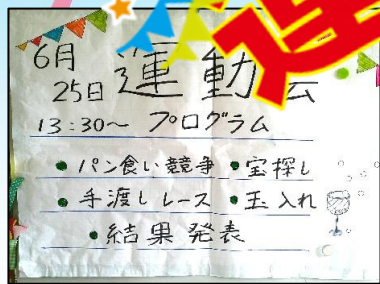 6月
25日 運動会
13:30~ プログラム
●パン食い競争 ●宝探し
●手渡しレース ●玉入れ
●結果発表